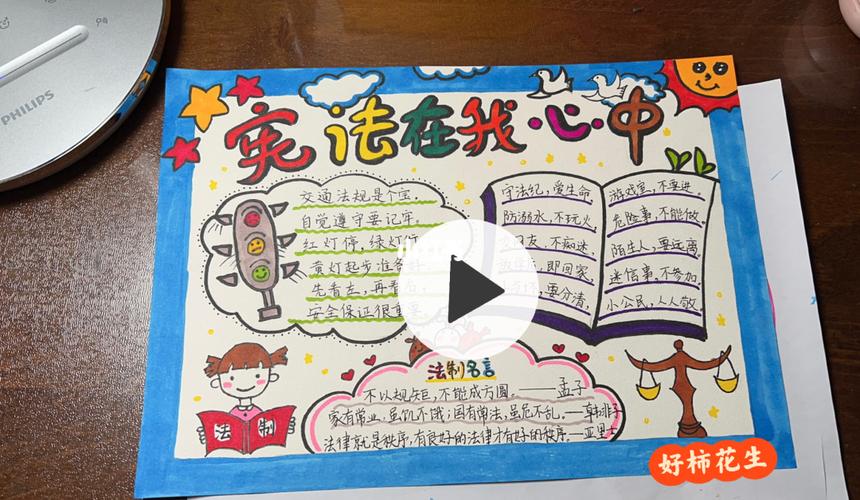 PHILIPS
宪法在我心中
交通法规是个宝,
自觉遵守要记牢,
红灯停,绿灯行
黄灯起步准备
先看左,再看右
安全保证很重要
守法纪,爱生命
防溺水,不玩火
网友,不痴迷
,即回家
,要分清
游戏室,不要进
危险事,不能做.
陌生人,要远离
迷信事,不参加.
小公民,人人敬
法制名言
不以规矩,不能成方圆.——孟子
家有常业,虽饥不饿;国有常法,虽危不乱.—韩非子
法律就是秩序,有良好的法律才有好的秩序.—亚里士
法制
好柿花生